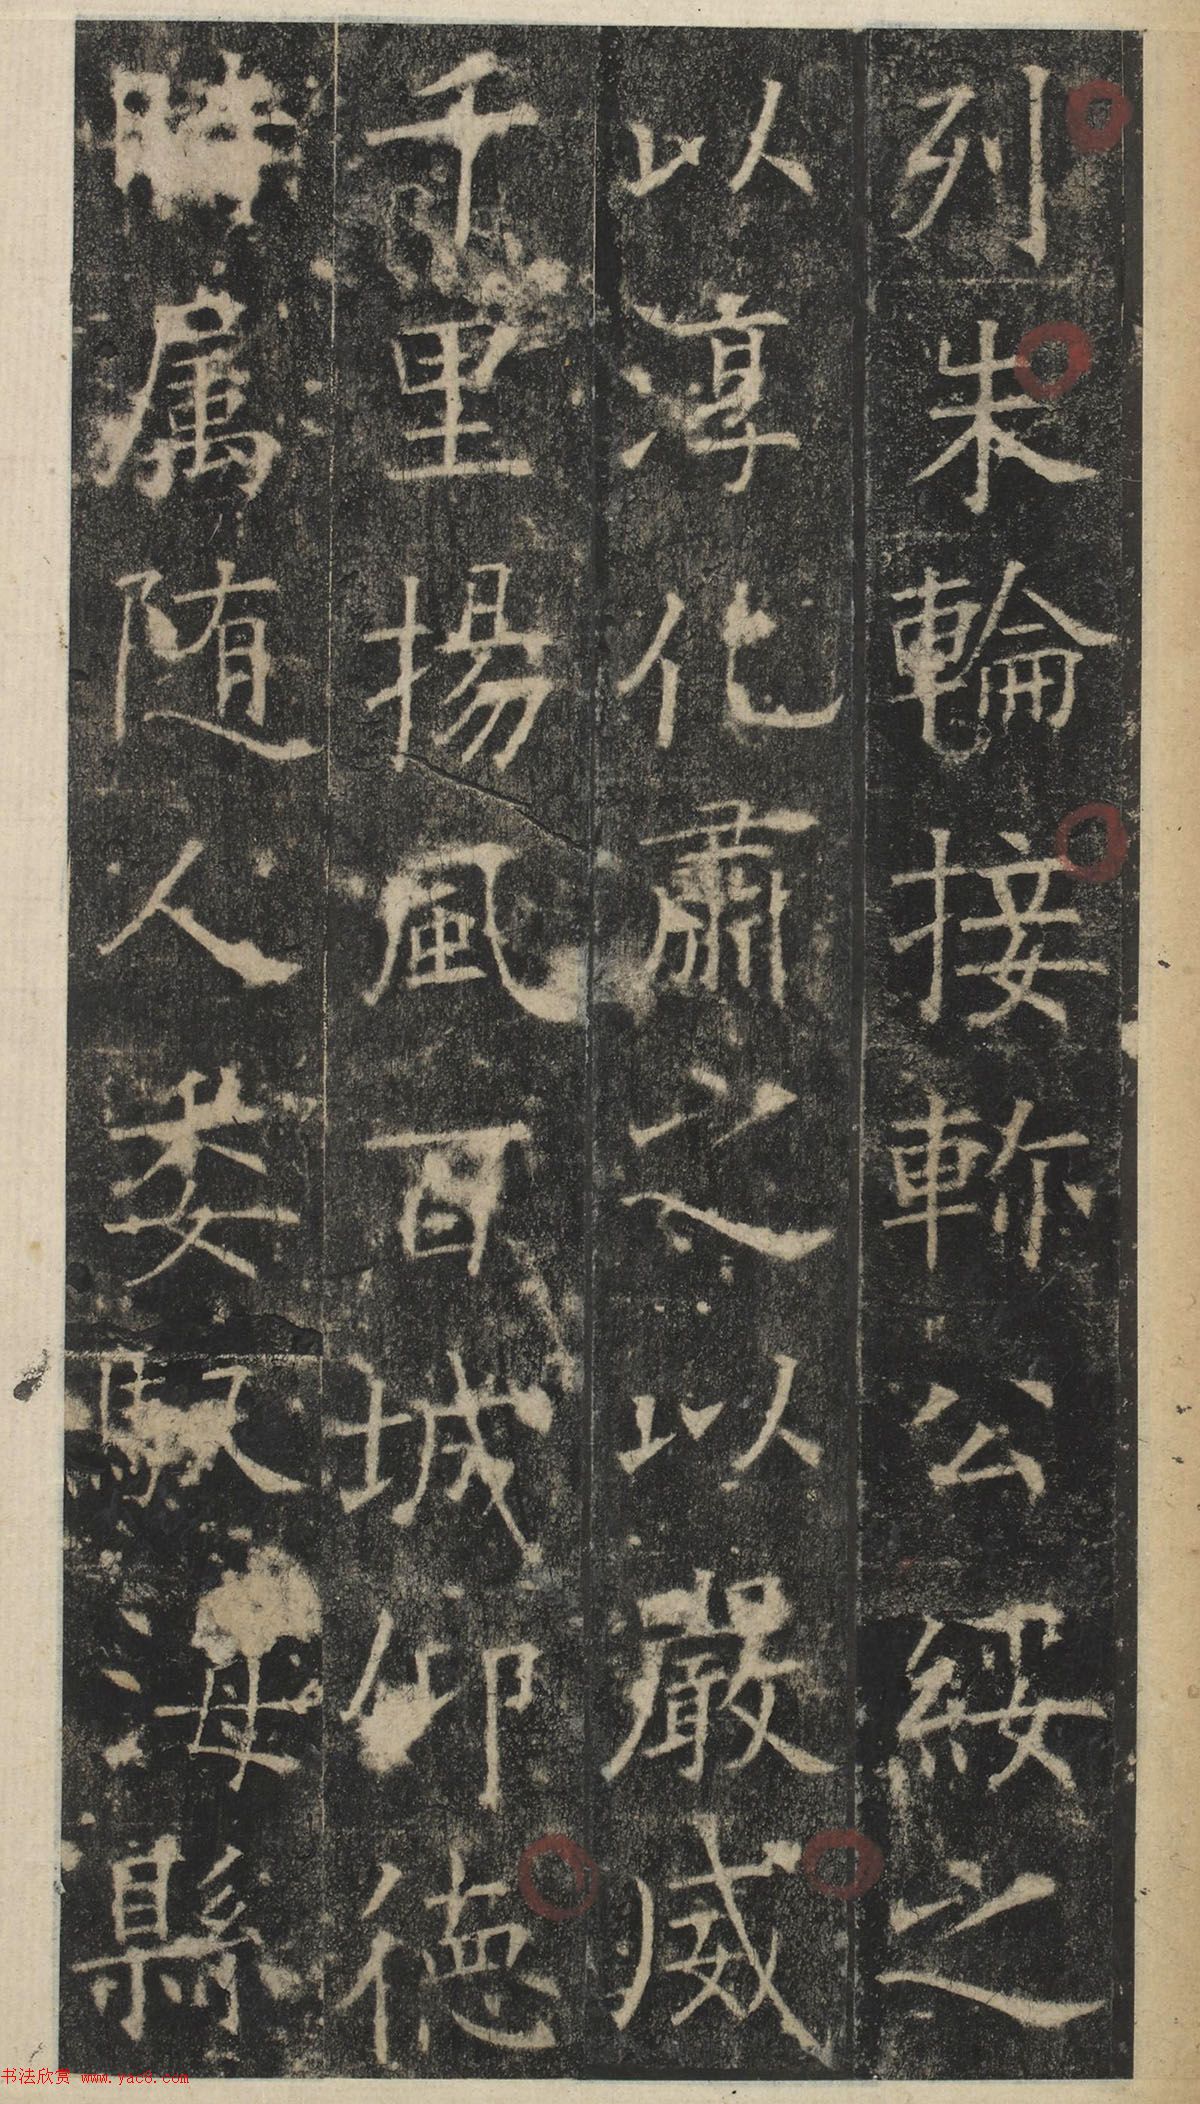 列朱輪接軫公綏之
以淳化肅之以嚴威
千里揚風百城仰德
時属随人委馭母縣
书法欣赏 www.yac8.com